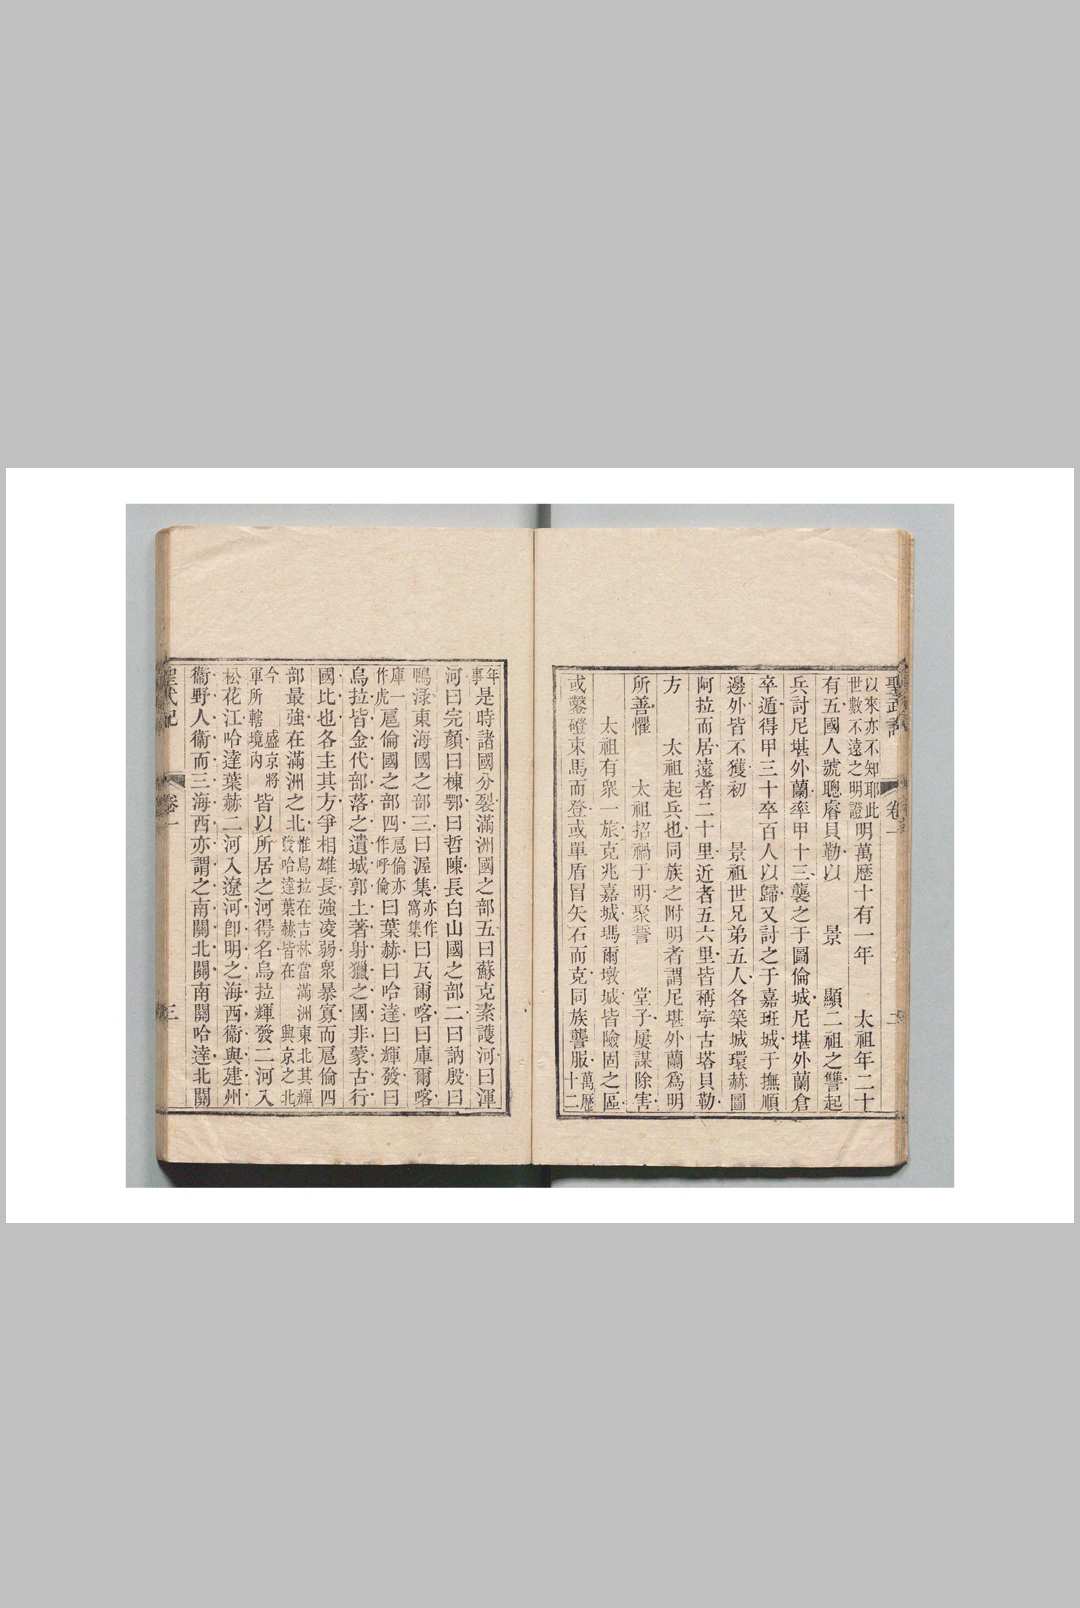 聖武記 卷一 二
以來亦不知耶此
世數不遠之明證
明萬歷十有一年 太祖年二十
有五國人號聰睿貝勒以 景 顯二祖之讐起
兵討尼堪外蘭率甲十三襲之于圖倫城尼堪外蘭倉
卒遁得甲三十卒百人以歸又討之于嘉班城于撫順
邊外皆不獲初 景祖世兄弟五人各築城環赫圖
阿拉而居遠者二十里近者五六里皆稱寧古塔貝勒
方 太祖起兵也同族之附明者謂尼堪外蘭為明
所善懼 太祖招禍于明聚誓 堂子屢謀除害
太祖有眾一旅克兆嘉城瑪爾墩城皆險固之區
或鑿磴束馬而登或單盾冒矢石而克同族讋服
萬歷
十二
年
事
是時諸國分裂滿洲國之部五曰蘇克素護河曰渾
河曰完顏曰棟鄂曰哲陳長白山國之部二曰訥殷曰
鴨淥東海國之部三曰渥集
亦作
窩集
曰瓦爾喀曰庫爾喀
庫一
作虎
扈倫國之部四
扈倫亦
作呼倫
曰葉赫曰哈達曰輝發曰
烏拉皆金代部落之遺城郭土著射獵之國非蒙古行
國比也各主其方爭相雄長強凌弱眾暴寡而扈倫四
部最強在滿洲之北
惟烏拉在吉林當滿洲東北其輝
發哈達葉赫皆在 興京之北
今 盛京將
軍所轄境內
皆以所居之河得名烏拉輝發二河入
松花江哈達葉赫二河入遼河卽明之海西衞與建州
衞野人衞而三海西亦謂之南關北關南關哈達北關
聖武記 卷一 三